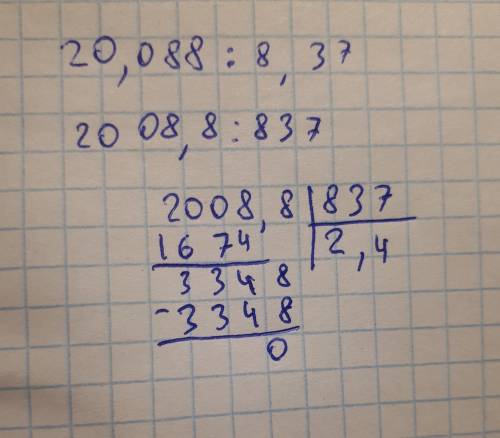 20,088 : 8,37
2008,8 : 837
2008,8 | 837
1674 | 2,4
3348
-3348
0